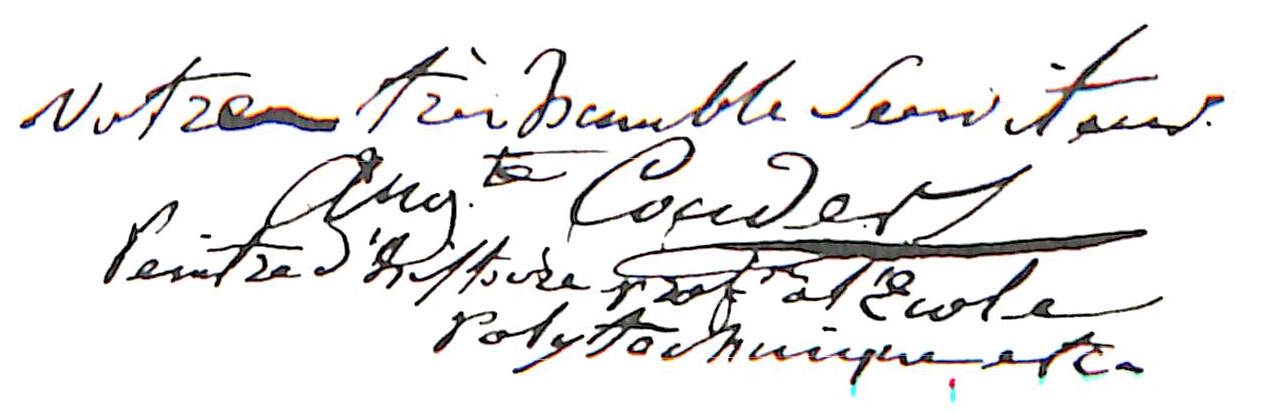 Votre très humble Serviteur.
Aug.te Couder
Peintre d'histoire profr à l'Ecole
Polytechnique etc.